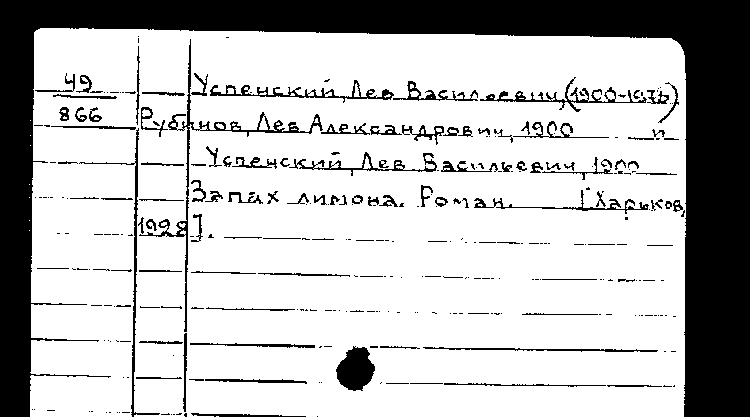 49 Успенский, Лев Васильевич, (1900-1978)
866 Рубинов, Лев Александрович, 1900 и
Успенский, Лев Васильевич, 1900
Запах лимона. Роман. [Харьков,
1928].